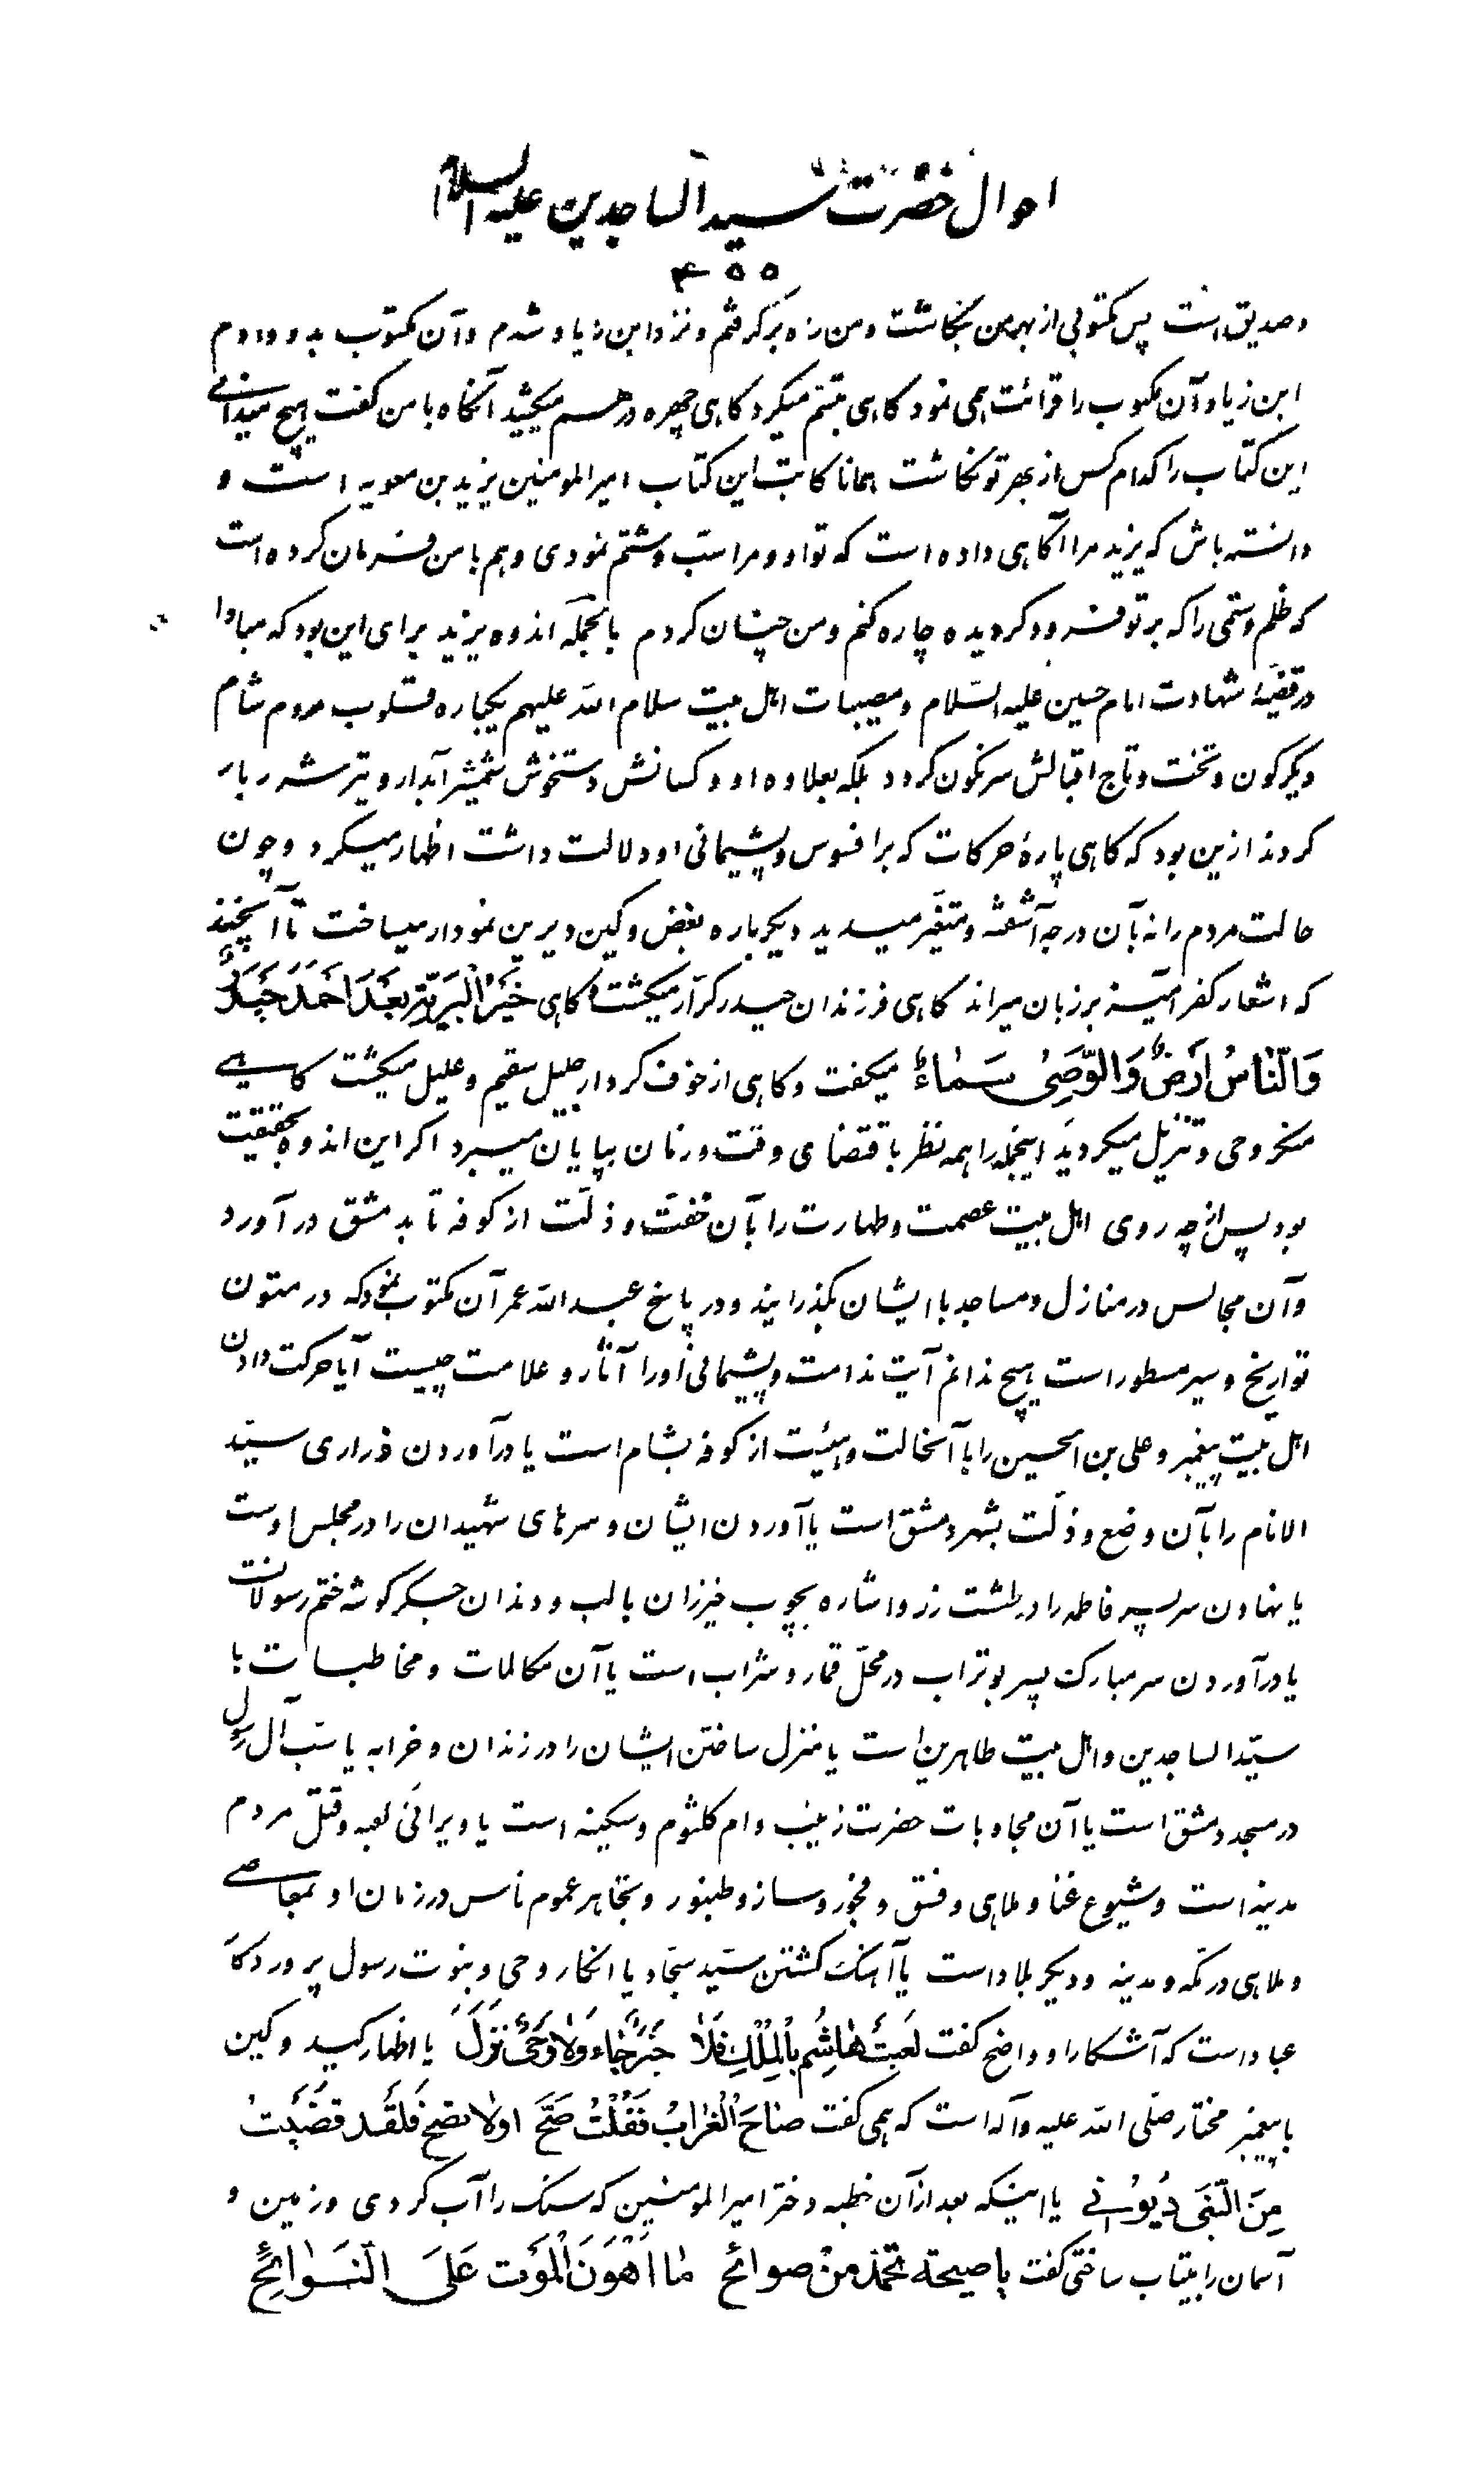 احوال حضرت سید الساجدین علیه السلام
۴۵۵
و صدیق است پس مکتوبی از بهر من بنگاشت و من راه برگرفتم و نزد ابن زیاد شدم و آن مکتوب بدو دادم
ابن زیاد آن مکتوب را قرائت همی نمود کاهی تبسم میکرد کاهی چهره درهم میکشید آنکاه با من کفت هیچ میدانی
این کتاب را کدام کس از بهر تو نکاشت همانا کاتب این کتاب امیر المومنین یزید بن معویه است و
دانسته باش که یزید مرا آکاهی داده است که تو او و مرا سب و شتم نمودی و هم با من فرمان کرده است
که ظلم و ستمی را که بر تو فرود کردیده چاره کنم و من چنان کردم بالجمله اندوه یزید برای این بود که مبادا
در قضیهٔ شهادت امام حسین علیه السلام و مصیبات اهل بیت سلام الله علیهم یکباره قلوب مردم شام
دیکرکون و تخت و تاج اقبالش سرنکون کردد بلکه بعلاوه او و کسانش دستخوش شمشیر آبدار و تیر شرربار
کردند ازین بود که کاهی پارهٔ حرکات که بر افسوس و پشیمانی او دلالت داشت اظهار میکرد و چون
حالت مردم را نه بآن درجه آشفته و متغیر میدید دیکرباره بغض و کین دیرین نمودار میساخت تا آنچند
که اشعار کفرآمیز بر زبان میراند کاهی فرزندان حیدر کرار میکشت و کاهی خَیرُ الْبَرِیَّةِ بَعْدَ اَحْمَدَ حَیدَرٌ
وَالنّاسُ اَرضٌ وَالوَصِیُ سَماءٌ میکفت و کاهی از خوف کردار جلیل سقیم و علیل میکشت کاهی
منکر وحی و تنزیل میکردید اینجمله را همه نظر باقتضای وقت و زمان بپایان میبرد اکر این اندوه بحقیقت
بود پس از چه روی اهل بیت عصمت و طهارت را بآن خفت و ذلت از کوفه تا بدمشق در آورد
و آن مجالس در منازل و مساجد با ایشان بکذرانید و در پاسخ عبد الله عمر آن مکتوب نمود که در متون
تواریخ و سیر مسطور است هیچ ندانم آیت ندامت و پشیمانی اورا آثار و علامت چیست آیا حرکت دادن
اهل بیت پیغمبر و علی بن الحسین را با آنحالت و هیئت از کوفه بشام است یا در آوردن ذراری سید
الانام را بآن وضع و ذلت بشهر دمشق است یا آوردن ایشان و سرهای شهیدان را در مجلس اوست
یا نهادن سر پسر فاطمه را در طشت زر و اشاره بچوب خیزران با لب و دندان جکرکوشه ختم رسولانست
یا در آوردن سر مبارک پسر بوتراب در محل قمار و شراب است یا آن مکالمات و مخاطبات با
سید الساجدین و اهل بیت طاهرین است یا منزل ساختن ایشان را در زندان و خرابه یا سب آل رسول
در مسجد دمشق است یا آن مجاوبات حضرت زینب و ام کلثوم و سکینه است یا ویرانی کعبه و قتل مردم
مدینه است و شیوع غنا و ملاهی و فسق و فجور و ساز و طنبور و تجاهر عموم ناس در زمان او بمعاصی
و ملاهی در مکه و مدینه و دیکر بلاد است یا آهنک کشتن سید سجاد یا انکار وحی و نبوت رسول پروردکار
عباد است که آشکارا و واضح کفت لَعِبَتْ هاشِمُ بِالْمُلْكِ فَلا خَبَرٌ جاءَ وَلا وَحْیٌ نَزَلَ یا اظهار کید و کین
با پیغمبر مختار صلی الله علیه و آله است که همی کفت صاحَ الْغُرابُ فَقُلْتُ صِحْ اولا تصح فَلَقَد قَضَیتُ
مِنَ النَّبِی دُیُونی یا اینکه بعد از آن خطبه دختر امیر المومنین که سنک را آب کردی و زمین و
آسمان را بیتاب ساختی کفت یا صیحة تحمد من صوائح ما اَهْوَنَ الْمَوتَ عَلَی النَّوائِحِ